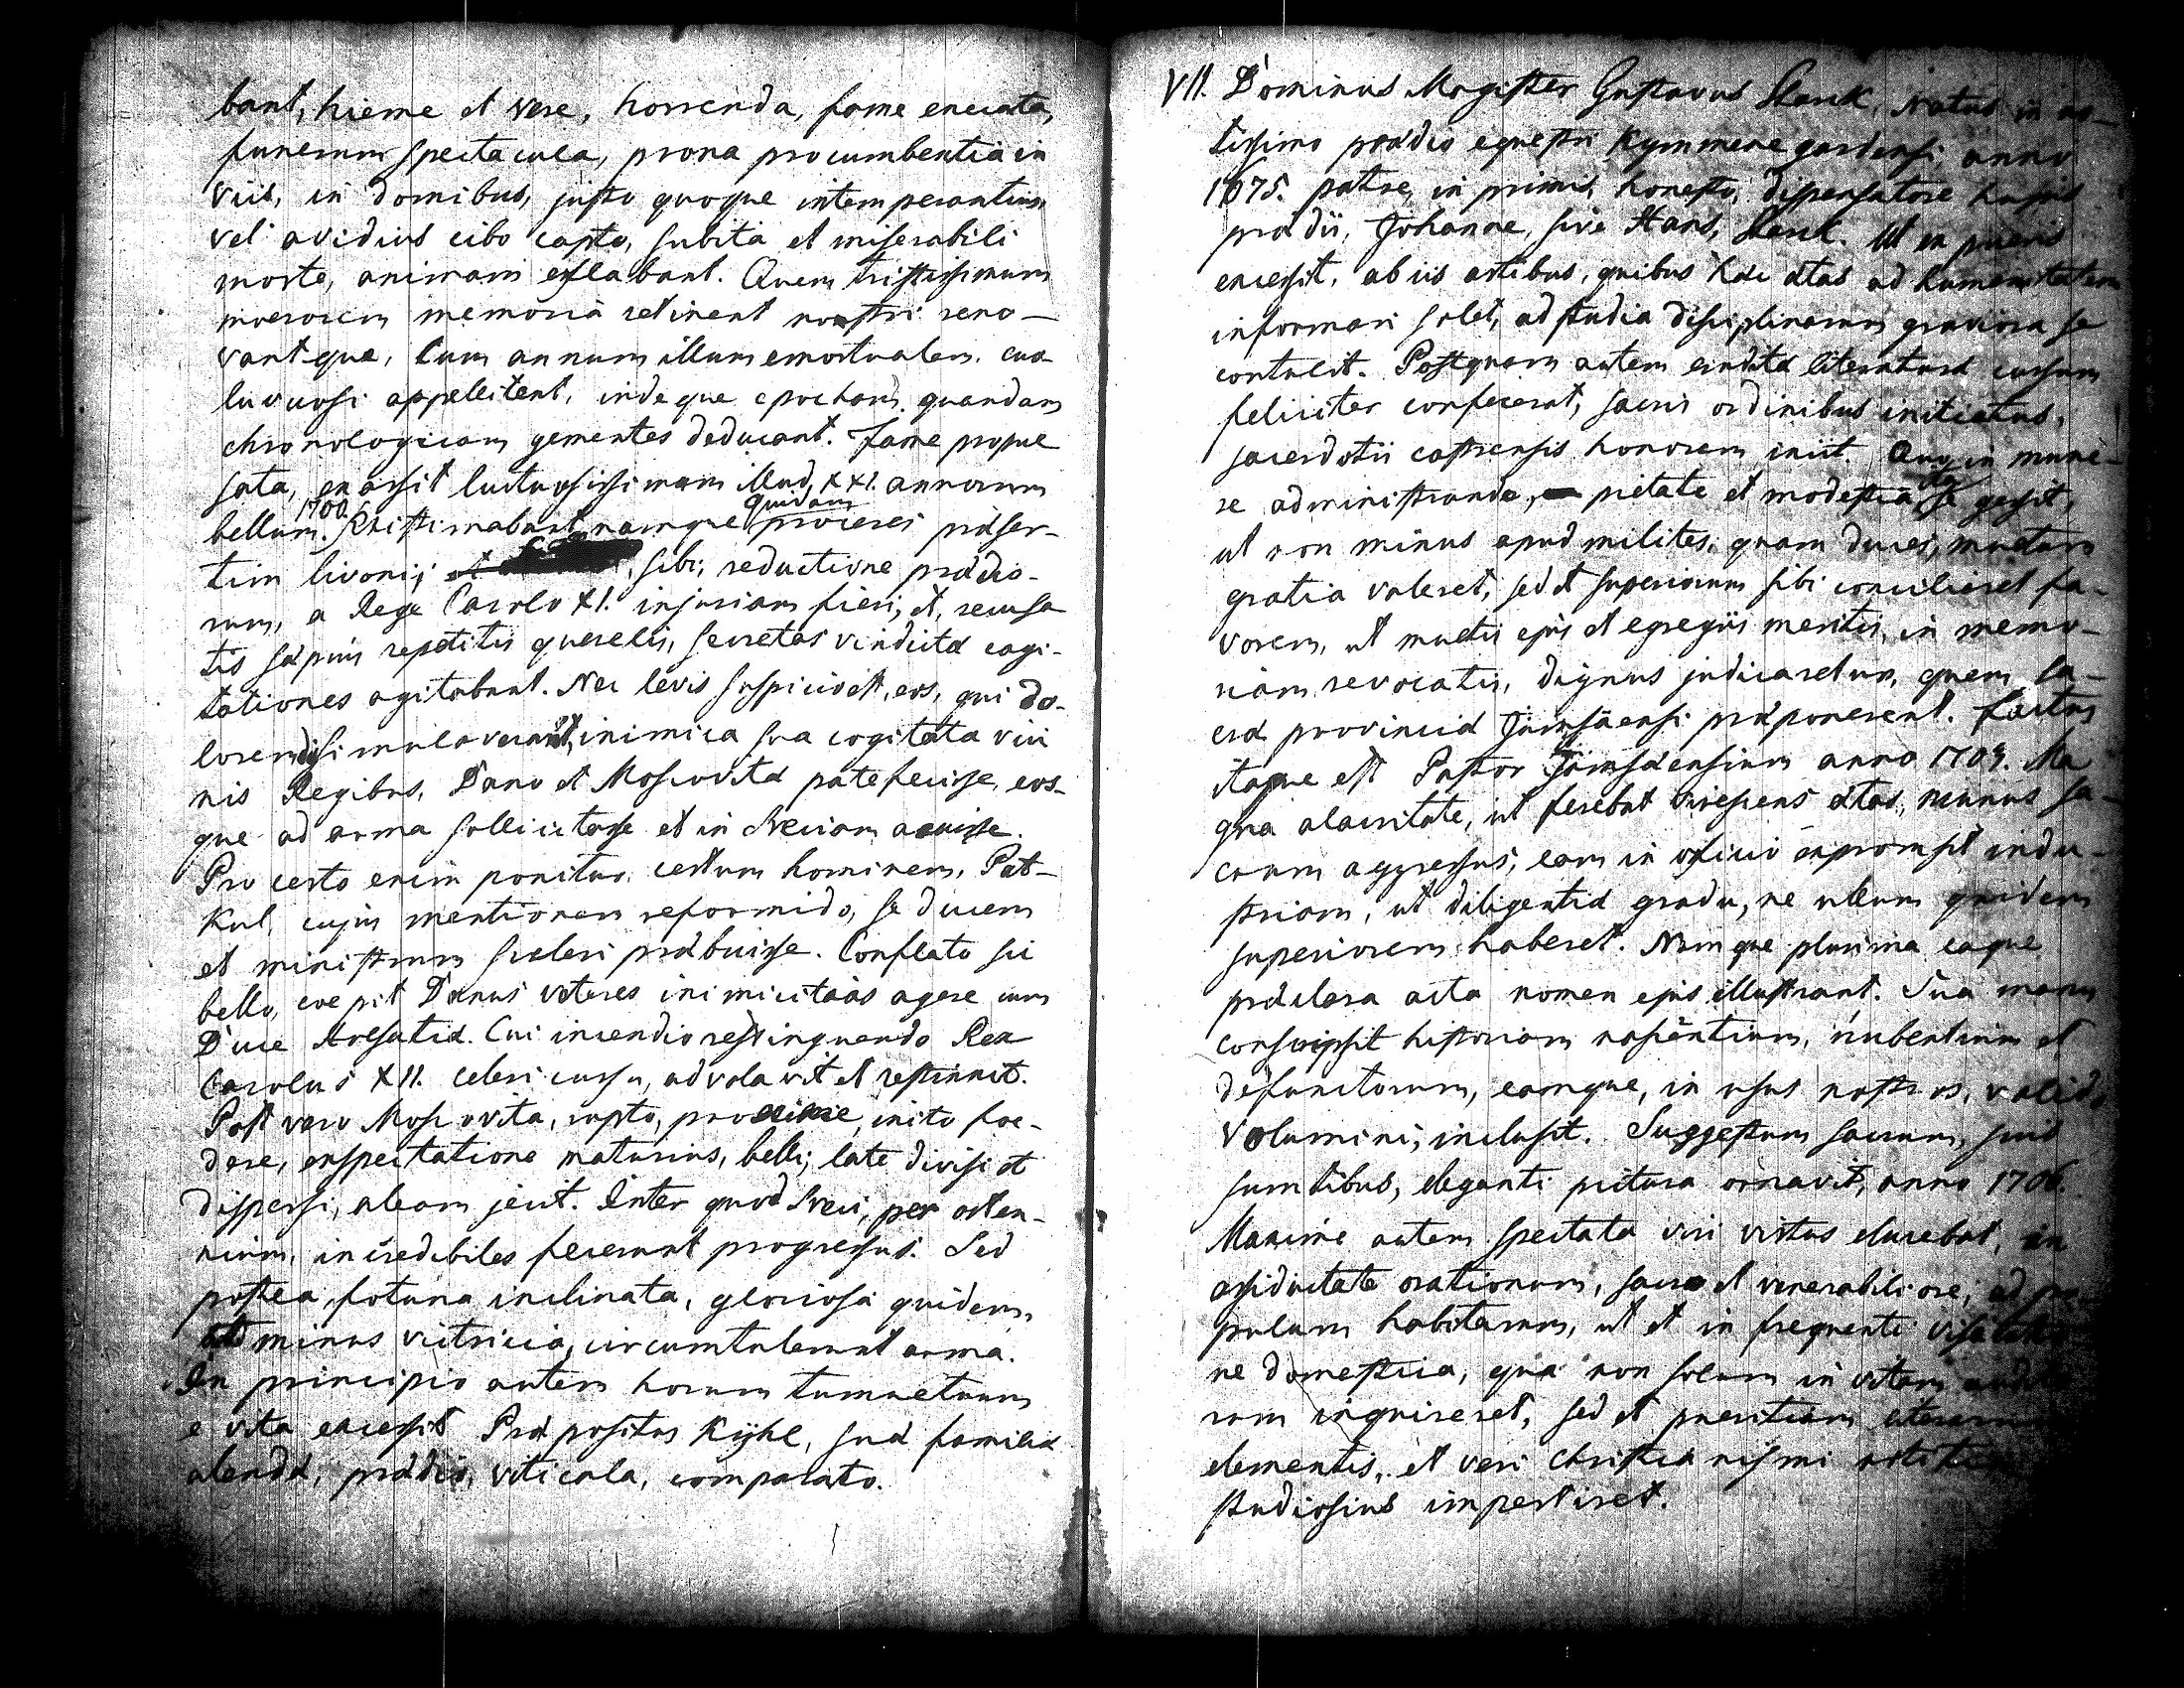 bant, hieme et vere, horrenda, fame enecata,
funerum spectacula, prona procumbentia in
viis, in domibus, justo quoque intemperantius
vel avidius cibo capto, subita et miserabili
morte, animam efflabant. Quem tristissimum
moerorem memoria retinent nostri reno-
vantque, cum annum illum emortualem
luvuosi appellitent, indeque epocham quandam
chronologicam gementes deducant. Fame propul
sata, exarsit luctuosissimum illud, XXI. annorum
bellum. 1700. Existimabant namque quidam proceres præser-
tim livonij, sibi, reductione prædio-
rum, a Rege Carolo XI. injuriam fieri, et, recusa
tis sæpius repetitis querelis, secretas vindictæ cogi-
tationes agitabant. Nec levis suspicio est, eos, qui do-
lorem dissimulaverant, inimica sua cogitata vici
nis Regibus, Dano et Moscovitæ patefecisse, eos-
que ad arma sollicitasse et in Sveciam acuisse.
Pro certo enim ponitur, certum hominem, Pat-
kul, cujus mentionem reformido, se ducem
et ministrum sceleri præbuisse. Conflato sic
bello, coepit Danus veteres inimicitias agere cum
Duce Holsatiæ. Cui incendio restinguendo Rex
Carolus XII. celeri cursu, advolavit et restinxit.
Post vero Moscovita, rupto, proxime, inito foe-
dere, exspectatione maturius, belli, late divisi et
dispersi, aleam jecit. Inter quod Sveci, per octen-
nium, incredibiles fecerunt progressus. Sed
postea, fotuna inclinata, gloriosa quidem,
at minus victricia, circumtulerunt arma.
In principio autem horum tumultuum
e vita excessit Præpositus Kijhl, suæ familiæ
alendæ, prædio, viticala, comparato.
VII. Dominus Magister Gustavus Slenk, Natus in no-
tissimo prædio equestri Kymmenegardensi anno
1675. patre, in primis, honesto, dispensatore hujus
prædii, Johanne, sive Hans, Slenk. Ut ex pueris
excessit, ab iis artibus, quibus hæc ætas ad humanitatem
informari solet, ad studia disciplinarum graviora se
contulit. Postquam autem eruditæ literaturæ cursum
feliciter confecerat, sacris ordinibus initiatus,
sacerdotii castrensis honorem iniit. Quo in mune-
re administrando, pietate et modestia ita se gessit,
ut non minus apud milites, quam duces, multam
gratia valeret, sed et superiorum sibi conciliaret fa-
vorem, ut multis ejus et egregiis meritis, in memo-
riam revocatis, dignus judicaretur, quem sa-
cræ provinciæ Jämsäensi præponerent. Factus
itaque est Pastor Jämsäensium anno 1704. Ma
gna alacritate, ut ferebat virescens ætas, munus sa-
crum aggressus, eam in officio expromsit indu-
striam, ut diligentiæ gradu, ne ullum quidem
superiorem haberet. Namque plurima eaque
præclara acta nomen ejus illustrant. Sua manu
conscripsit historiam nascentium, nubentium et
defunctorum, eamque, in usus nostros, valido
volumini, inclusit. Suggestum sacrum, suis
sumtibus, eleganti pictura ornavit, anno 1706.
Maxime autem spectata viri virtus elucebat, in
assiduitate orationum, sacro et venerabili ore, ad po-
pulum habitarum, ut et in frequenti visitatio-
ne domestica, qua non solum in vitam
rum inquireret, sed et pueritiam literarum
elementis, et veri christianismi
studiosius impertiret.